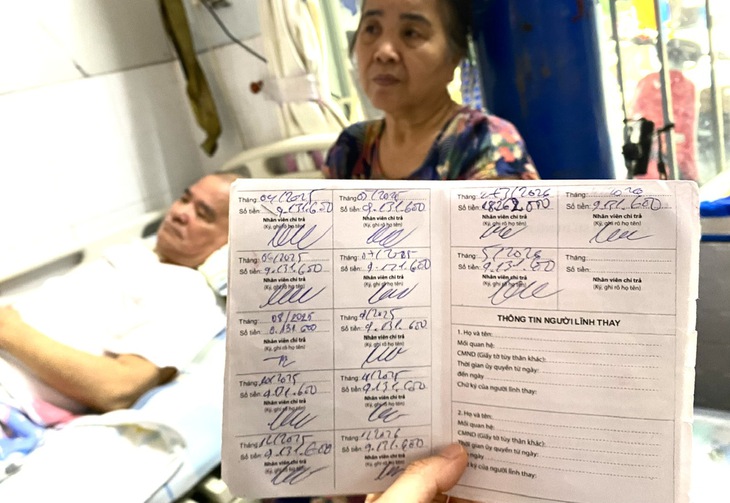 Tháng: 04/2025
Số tiền: 9.131.600
Nhân viên chi trả
(Ký, ghi rõ họ tên)
Tháng: 05/2025
Số tiền: 9.131.600
Nhân viên chi trả
(Ký, ghi rõ họ tên)
Tháng: 06/2025
Số tiền: 9.131.600
Nhân viên chi trả
(Ký, ghi rõ họ tên)
Tháng: 07/2025
Số tiền: 9.131.600
Nhân viên chi trả
(Ký, ghi rõ họ tên)
Tháng: 08/2025
Số tiền: 9.131.600
Nhân viên chi trả
(Ký, ghi rõ họ tên)
Tháng: 9/2025
Số tiền: 9.131.600
Nhân viên chi trả
(Ký, ghi rõ họ tên)
Tháng: 10/2025
Số tiền: 9.131.600
Nhân viên chi trả
(Ký, ghi rõ họ tên)
Tháng: 11/2025
Số tiền: 9.131.600
Nhân viên chi trả
(Ký, ghi rõ họ tên)
Tháng: 12/2025
Số tiền: 9.131.600
Nhân viên chi trả
(Ký, ghi rõ họ tên)
Tháng: 1/2026
Số tiền: 9.131.600
Nhân viên chi trả
(Ký, ghi rõ họ tên)
Tháng: 2+3/2026
Số tiền:
Nhân viên chi trả
(Ký, ghi rõ họ tên)
Tháng: 2026
Số tiền: 9.131.600
Nhân viên chi trả
(Ký, ghi rõ họ tên)
Tháng: 5/2026
Số tiền: 9.131.600
Nhân viên chi trả
(Ký, ghi rõ họ tên)
Tháng:
Số tiền:
Nhân viên chi trả
(Ký, ghi rõ họ tên)
THÔNG TIN NGƯỜI LĨNH THAY
1. Họ và tên:
Mối quan hệ:
CMND (Giấy tờ tùy thân khác):
Thời gian ủy quyền từ ngày:
đến ngày
Chữ ký của người lĩnh thay:
2. Họ và tên:
Mối quan hệ:
CMND (Giấy tờ tùy thân khác):
Thời gian ủy quyền từ ngày:
đến ngày
ký của người lĩnh thay: